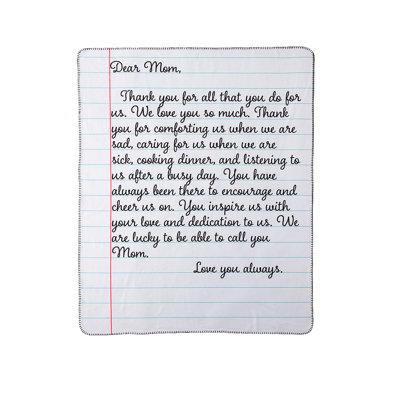 Dear Mom,
Thank you for all that you do for
us. We love you so much. Thank
you for comforting us when we are
sad, caring for us when we are
sick, cooking dinner, and listening to
us after a busy day. You have
always been there to encourage and
cheer us on. You inspire us with
your love and dedication to us. We
are lucky to be able to call you
Mom.
Love you always.